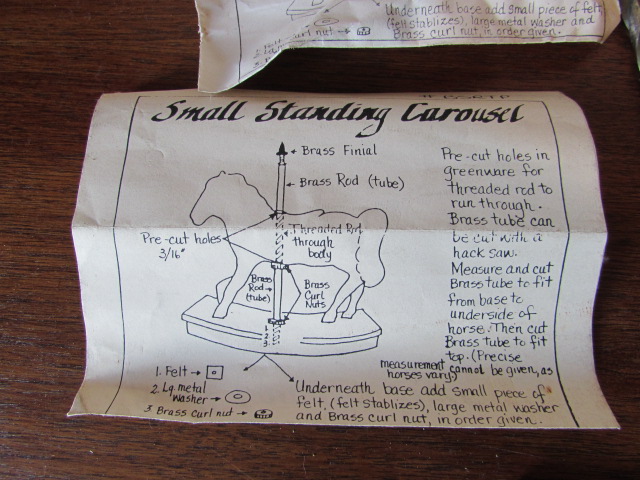 Underneath base add small piece of felt
(felt stablizes), large metal washer and
Brass curl nut, in order given.
curl nut →
Small Standing Carousel
Brass Finial
Brass Rod (tube)
Threaded Rod
through
body
Pre-cut holes
3/16"
Brass
Rod→
(tube)
Brass
Curl
Nuts
1
2
3
Pre-cut holes in
greenware for
threaded rod to
run through.
Brass tube can
be cut with a
hack saw.
Measure and cut
Brass tube to fit
from base to
underside of
horse. Then cut
Brass tube to fit
top. (Precise
measurement cannot be given, as
horses vary)
1. Felt →
2. Lg. metal
washer →
3. Brass curl nut →
Underneath base add small piece of
felt, (felt stablizes), large metal washer
and Brass curl nut, in order given.